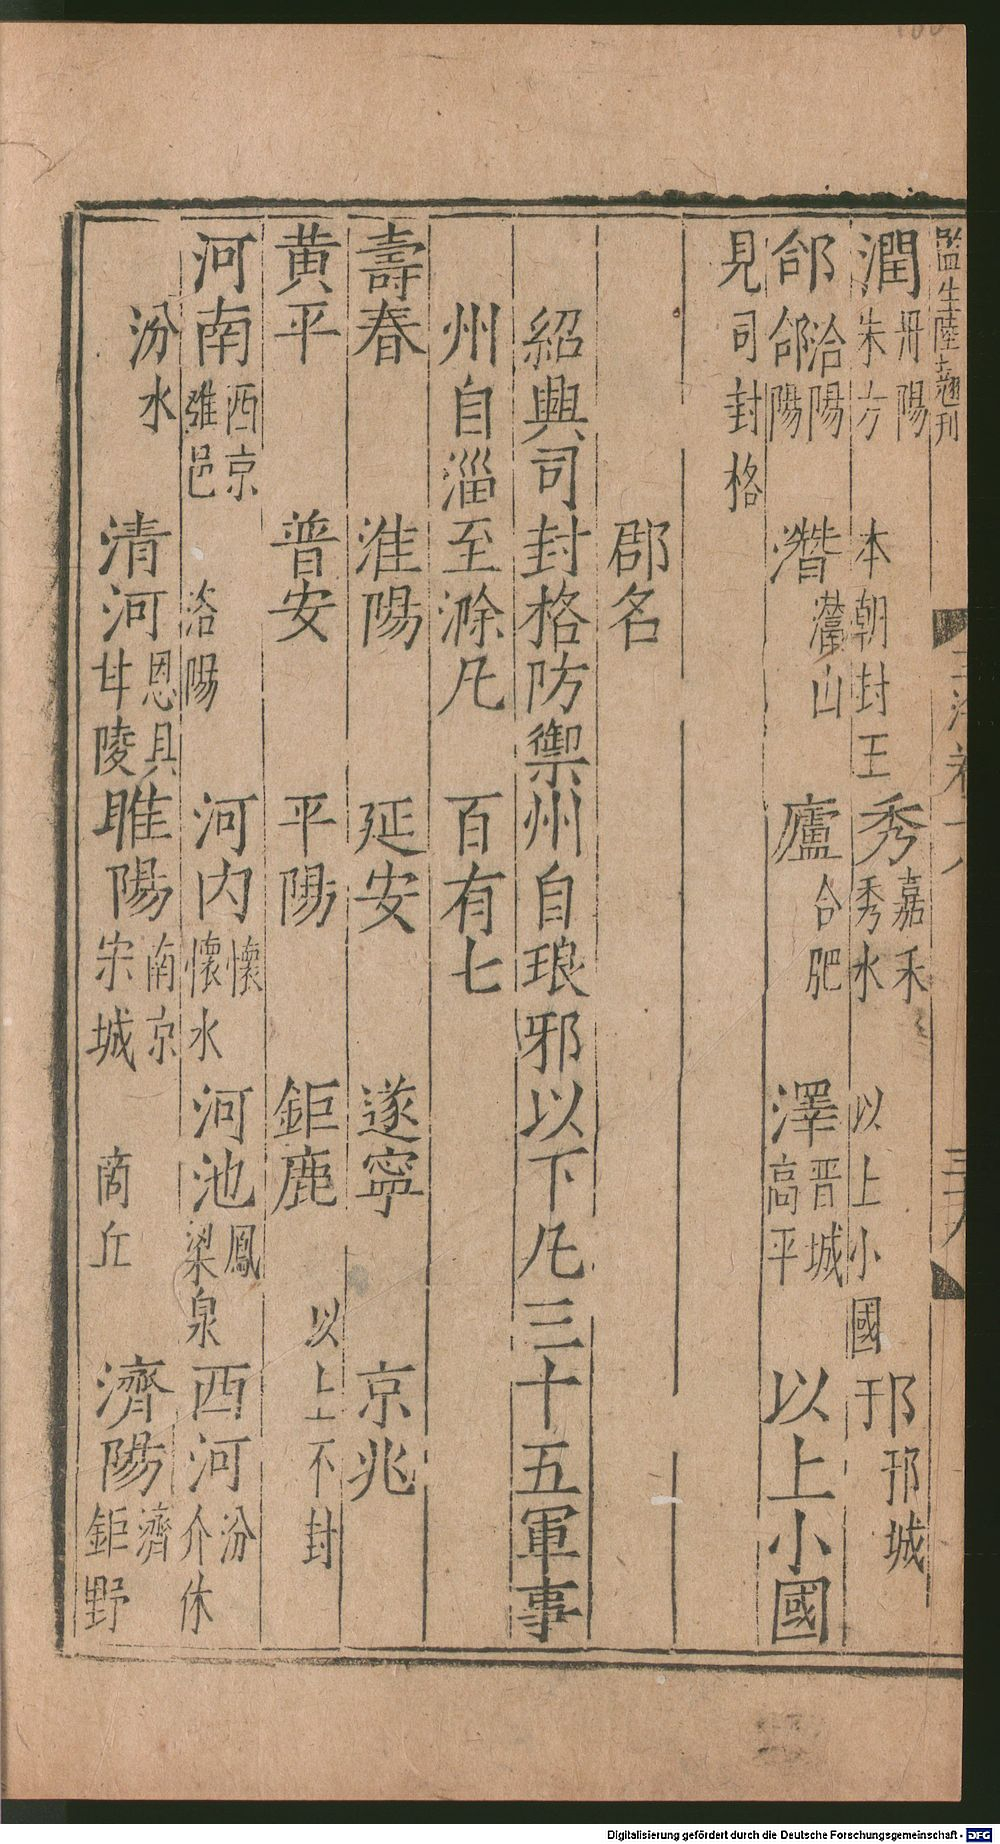 監生陸翹刊
潤 丹陽 朱方 本朝封王 秀 嘉禾 秀水 以上小國 邘 邘城
郃 洽陽 郃陽 灊 灊山 廬 合肥 澤 晉城 高平 以上小國
見司封格
郡名
紹興司封格防禦州自琅邪以下凡三十五軍事
州自淄至滁凡百有七
壽春 淮陽 延安 遂寧 京兆
黃平 普安 平陽 鉅鹿 以上不封
河南 西京 雒邑 洛陽 河內 懷 懷水 河池 鳳 梁泉 西河 汾 介休
汾水 清河 恩具 甘陵 睢陽 南京 宋城 商丘 濟陽 濟 鉅野
Digitalisierung gefördert durch die Deutsche Forschungsgemeinschaft - DFG